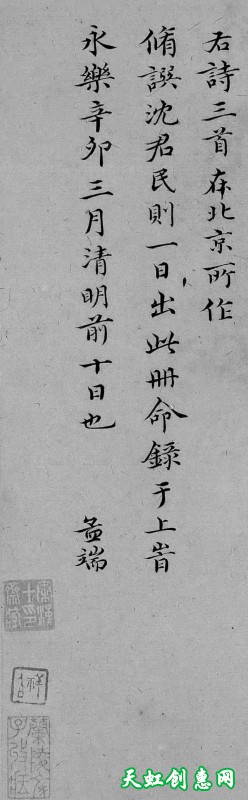 右詩三首在北京所作
脩譔沈君民則一日出此冊命錄于上眢
永樂辛卯三月清明前十日也 孟端
天虹创惠网